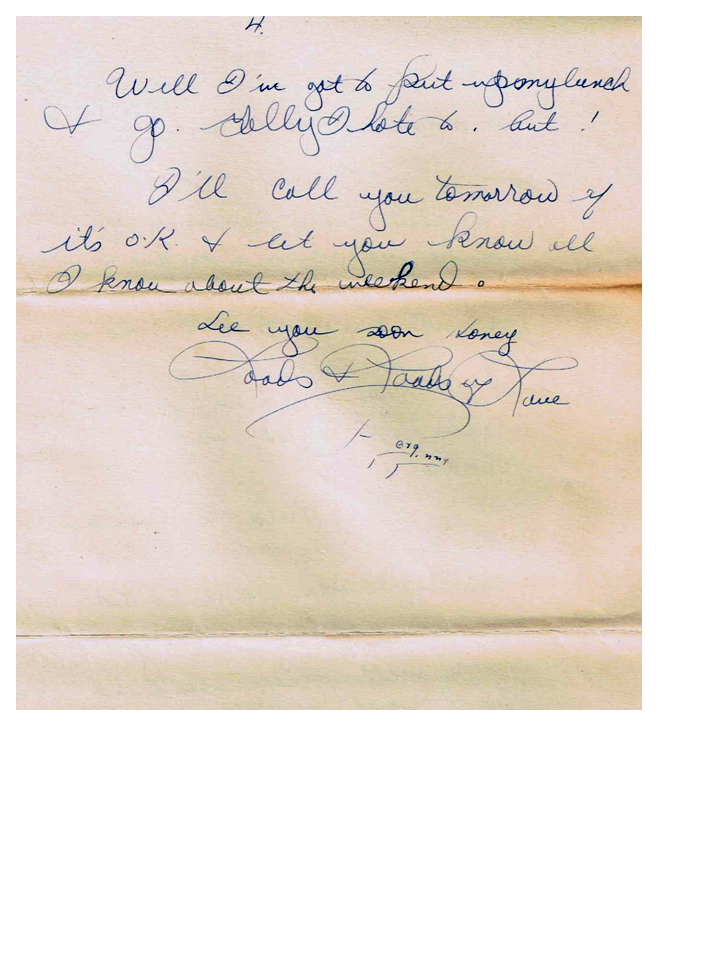 4.
Well I've got to put up my lunch
& go. Golly I hate to. but!
I'll call you tomorrow if
it's O.K. & let you know all
I know about the weekend.
See you soon Honey
Loads & Loads of Love